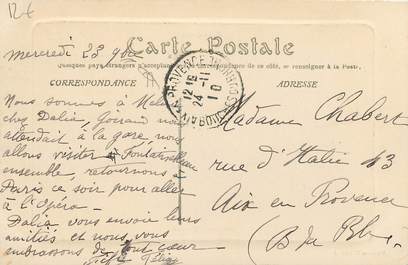 12€
Carte Postale
Quelques pays étrangers n'acceptent pas de correspondance de ce côté, se renseigner à la Poste.
CORRESPONDANCE
ADRESSE
mercredi 23 9bre
Nous sommes à
chez Dalia,
attendait à la gare, nous
allons visiter Fontainebleau
ensemble, retournons
Paris ce soir pour aller
à l'opéra.
Dalia vous envoie leurs
amitiés et nous vous
embrassons de tout cœur
12
24 -11
10
Madame Chabert
rue d'Italie 43
Aix en Provence
(B du Rh.)